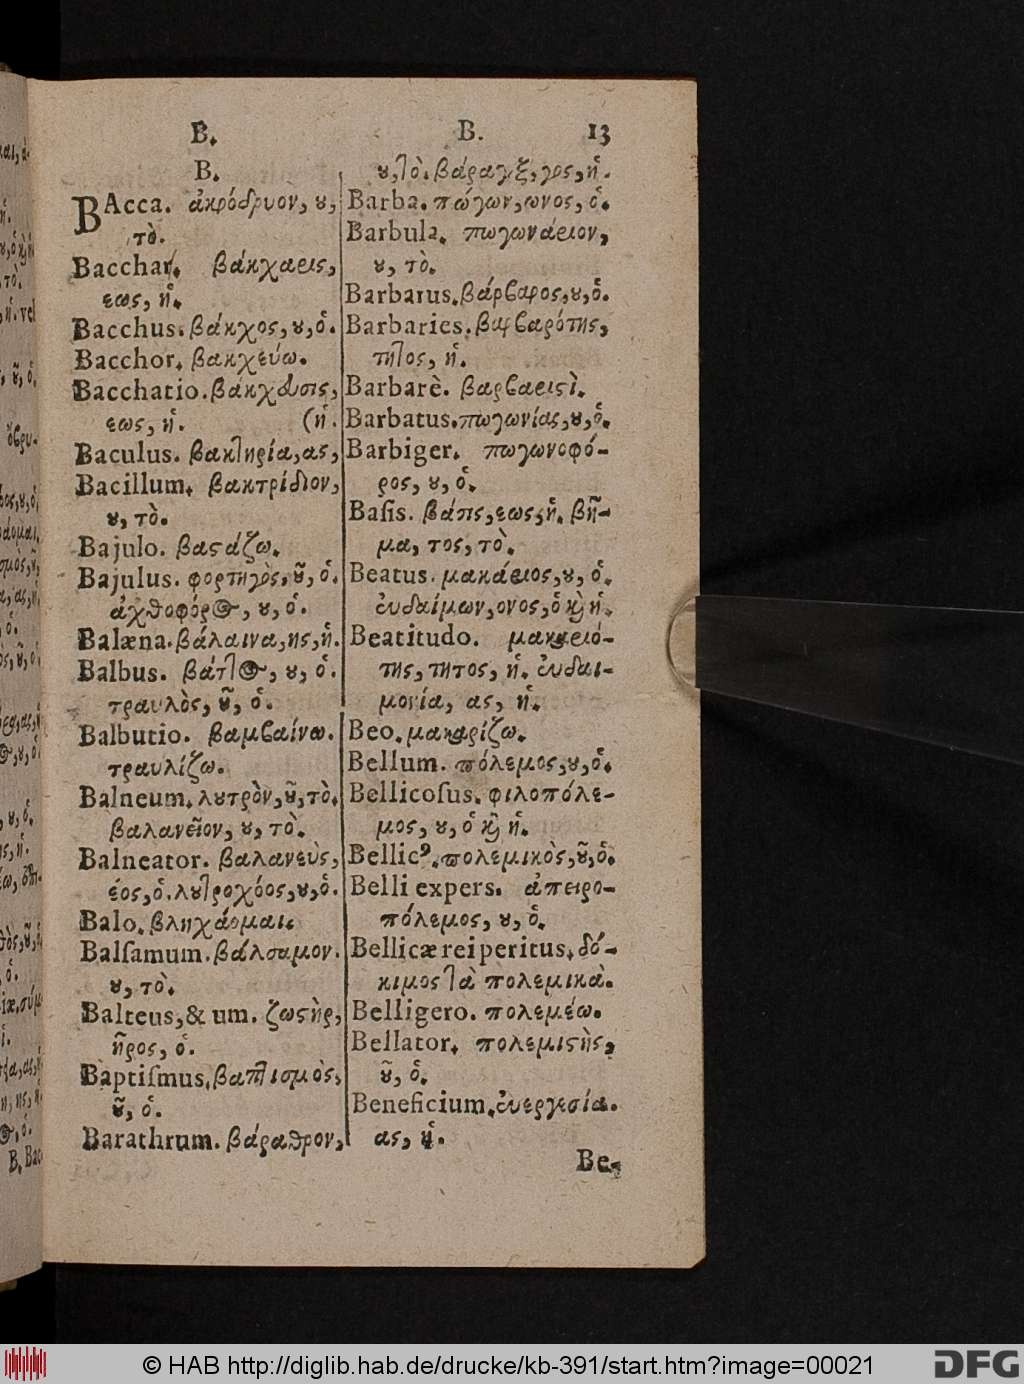 B. B. 13
B.
BAcca. ἀκρόδρυον, ȣ,
τὸ.
Bacchar. βάκχαρις,
εως, ἡ.
Bacchus. βάκχος, ȣ, ὁ.
Bacchor. βακχεύω.
Bacchatio. βάκχευσις,
εως, ἡ. (ἡ.
Baculus. βακτηρία, ας,
Bacillum. βακτρίδιον,
ȣ, τὸ.
Bajulo. βαϛάζω.
Bajulus. φορτηγὸς, ȣ͂, ὁ.
ἀχθοφόρος, ȣ, ὁ.
Balæna. βάλαινα, ης, ἡ.
Balbus. βάτλος, ȣ, ὁ.
τραυλὸς, ȣ͂, ὁ.
Balbutio. βαμβαίνω.
τραυλίζω.
Balneum. λυτρὸν, ȣ͂, τὸ.
βαλανεῖον, ȣ, τὸ.
Balneator. βαλανεὺς,
έος, ὁ. λȣτροχόος, ȣ, ὁ.
Balo. βληχάομαι.
Balſamum. βάλσαμον.
ȣ, τὸ.
Balteus, & um. ζωϛὴρ,
ῆρος, ὁ.
Baptiſmus. βαπτισμὸς,
ȣ͂, ὁ.
Barathrum. βάραθρον,
ȣ, τὸ. βάραγξ, γος, ἡ.
Barba. πώγων, ωνος, ὁ.
Barbula. πωγωνάριον,
ȣ, τὸ.
Barbarus. βάρβαρος, ȣ, ὁ.
Barbaries. βαρβαρότης,
τητος, ἡ.
Barbarè. βαρβαριϛὶ.
Barbatus. πωγωνίας, ȣ, ὁ.
Barbiger. πωγωνοφό-
ρος, ȣ, ὁ.
Baſis. βάσις, εως, ἡ. βῆ-
μα, τος, τὸ.
Beatus. μακάριος, ȣ, ὁ.
ἐυδαίμων, ονος, ὁ ϗ ἡ.
Beatitudo. μακαριό-
της, τητος, ἡ. ἐυδαι-
μονία, ας, ἡ.
Beo. μακαρίζω.
Bellum. πόλεμος, ȣ, ὁ.
Bellicoſus. φιλοπόλε-
μος, ȣ, ὁ ϗ ἡ.
Bellicꝰ. πολεμικὸς, ȣ͂, ὁ.
Belli expers. ἀπειρο-
πόλεμος, ȣ, ὁ.
Bellicæ rei peritus. δό-
κιμος τὰ πολεμικὰ.
Belligero. πολεμέω.
Bellator. πολεμιϛὴς,
ȣ͂, ὁ.
Beneficium. ἐυεργεσία.
ας, ἡ.
Be-
© HAB http://diglib.hab.de/drucke/kb-391/start.htm?image=00021
DFG